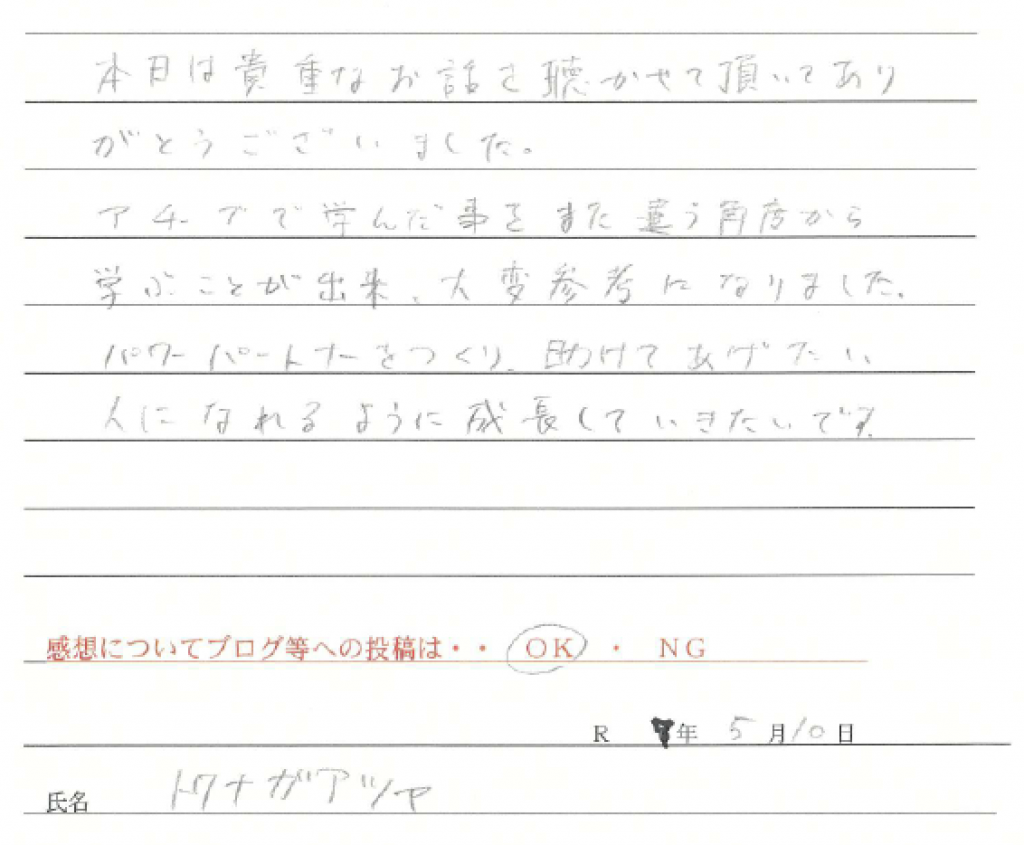 本日は貴重なお話を聴かせて頂いてあり
がとうございました。
アチーブで学んだ事をまた違う角度から
学ぶことが出来、大変参考になりました。
パワーパートナーをつくり、助けてあげたい
人になれるように成長していきたいです。
感想についてブログ等への投稿は・・ OK ・ NG
R 年 5月10日
氏名 トクナガアツヤ